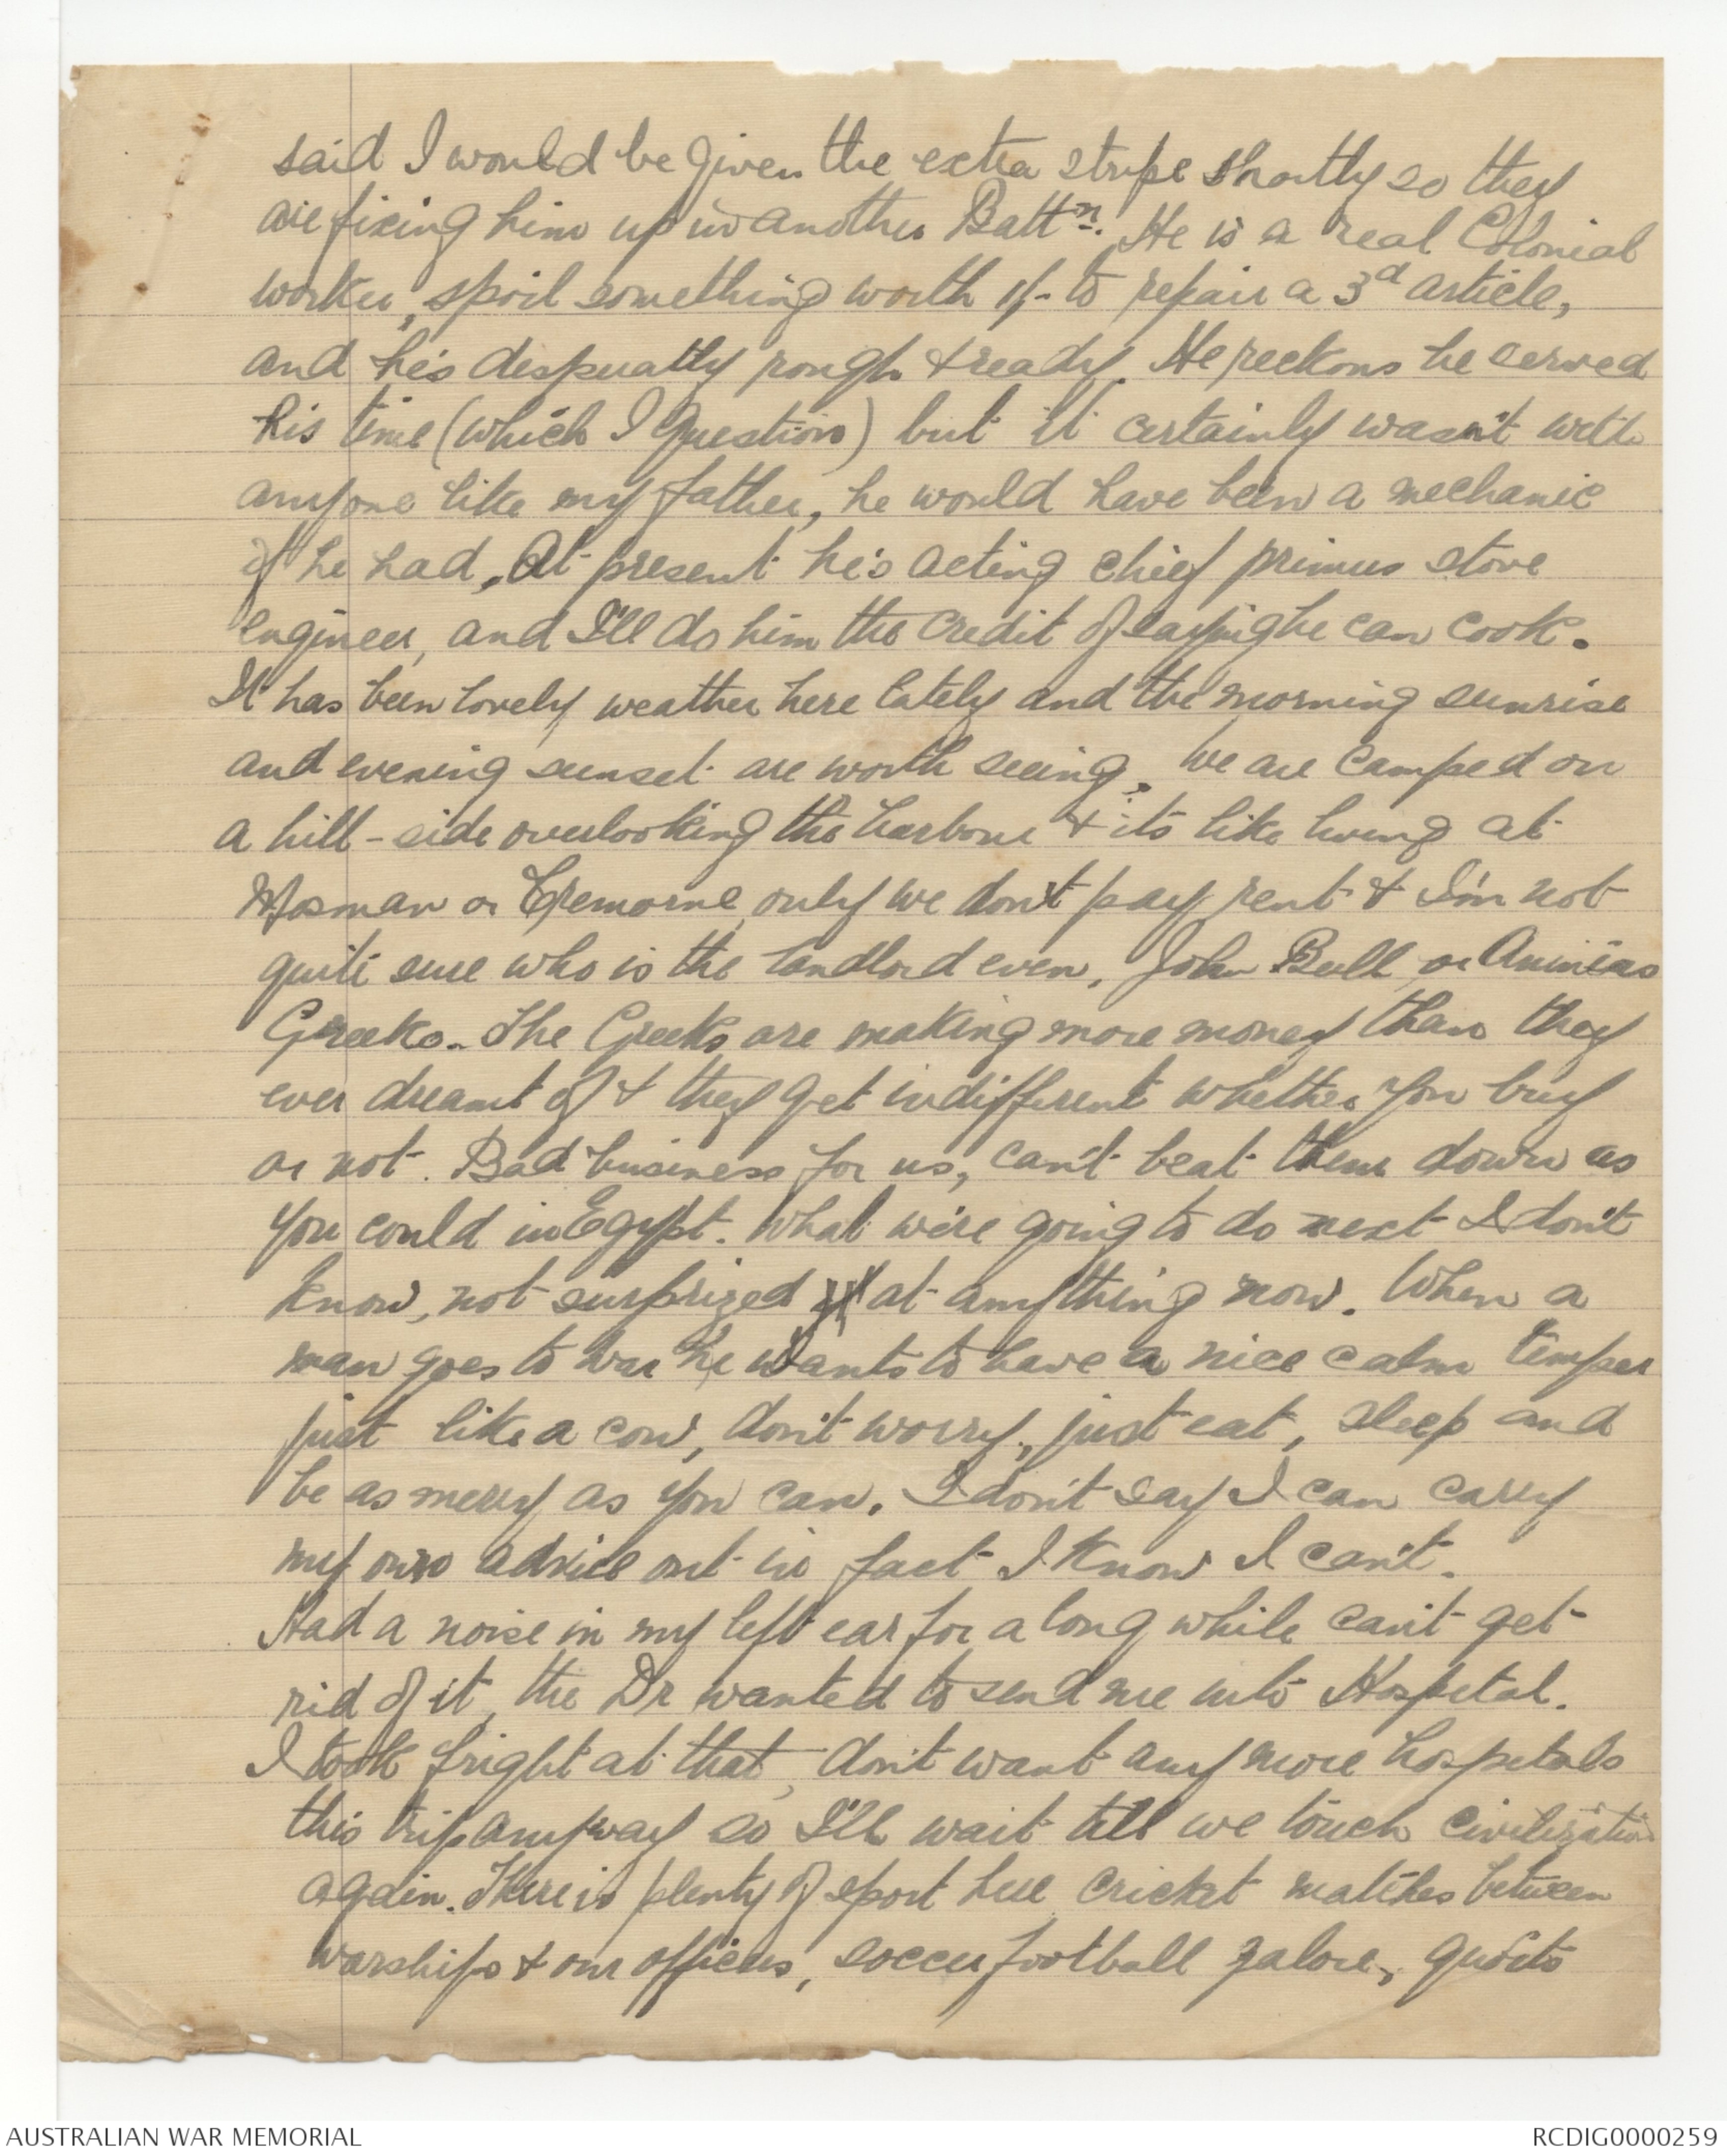 said I would be given the extra stripe shortly so they
are fixing him up in another Battn. He is a real Colonial
worker, spoil something worth 1/- to repair a 3d article,
and he's desperatly rough & ready. He reckons he served
his time (which I question) but it certainly wasn't with
anyone like my father, he would have been a mechanic
if he had. At present he's acting chief primus stove
engineer, and I'll do him the credit of saying he can cook.
It has been lovely weather here lately and the morning sunrise
and evening sunset are worth seeing. We are camped on
a hill-side overlooking the harbour & its like living at
Mosman or Cremorne, only we don't pay rent & I'm not
quite sure who is the landlord even, John Bull, or
Greeks. The Greeks are making more money than they
ever dreamt of & they get indifferent whether you buy
or not. Bad business for us, can't beat them down as
you could in Egypt. What we're going to do next I don't
know, not surprized at anything now. When a
man goes to war he wants to have a nice calm temper
just like a cow, don't worry, just eat, sleep and
be as merry as you can. I don't say I can carry
my own advice out in fact I know I can't.
Had a noise in my left ear for a long while can't get
rid of it, the Dr wanted to send me into Hospetal.
I took fright at that, don't want any more hospetals
this trip anyway so I'll wait till we touch civilization
again. There is plenty of sport here cricket matches between
warships & our officers, soccer football galore, quoits
AUSTRALIAN WAR MEMORIAL
RCDIG0000259